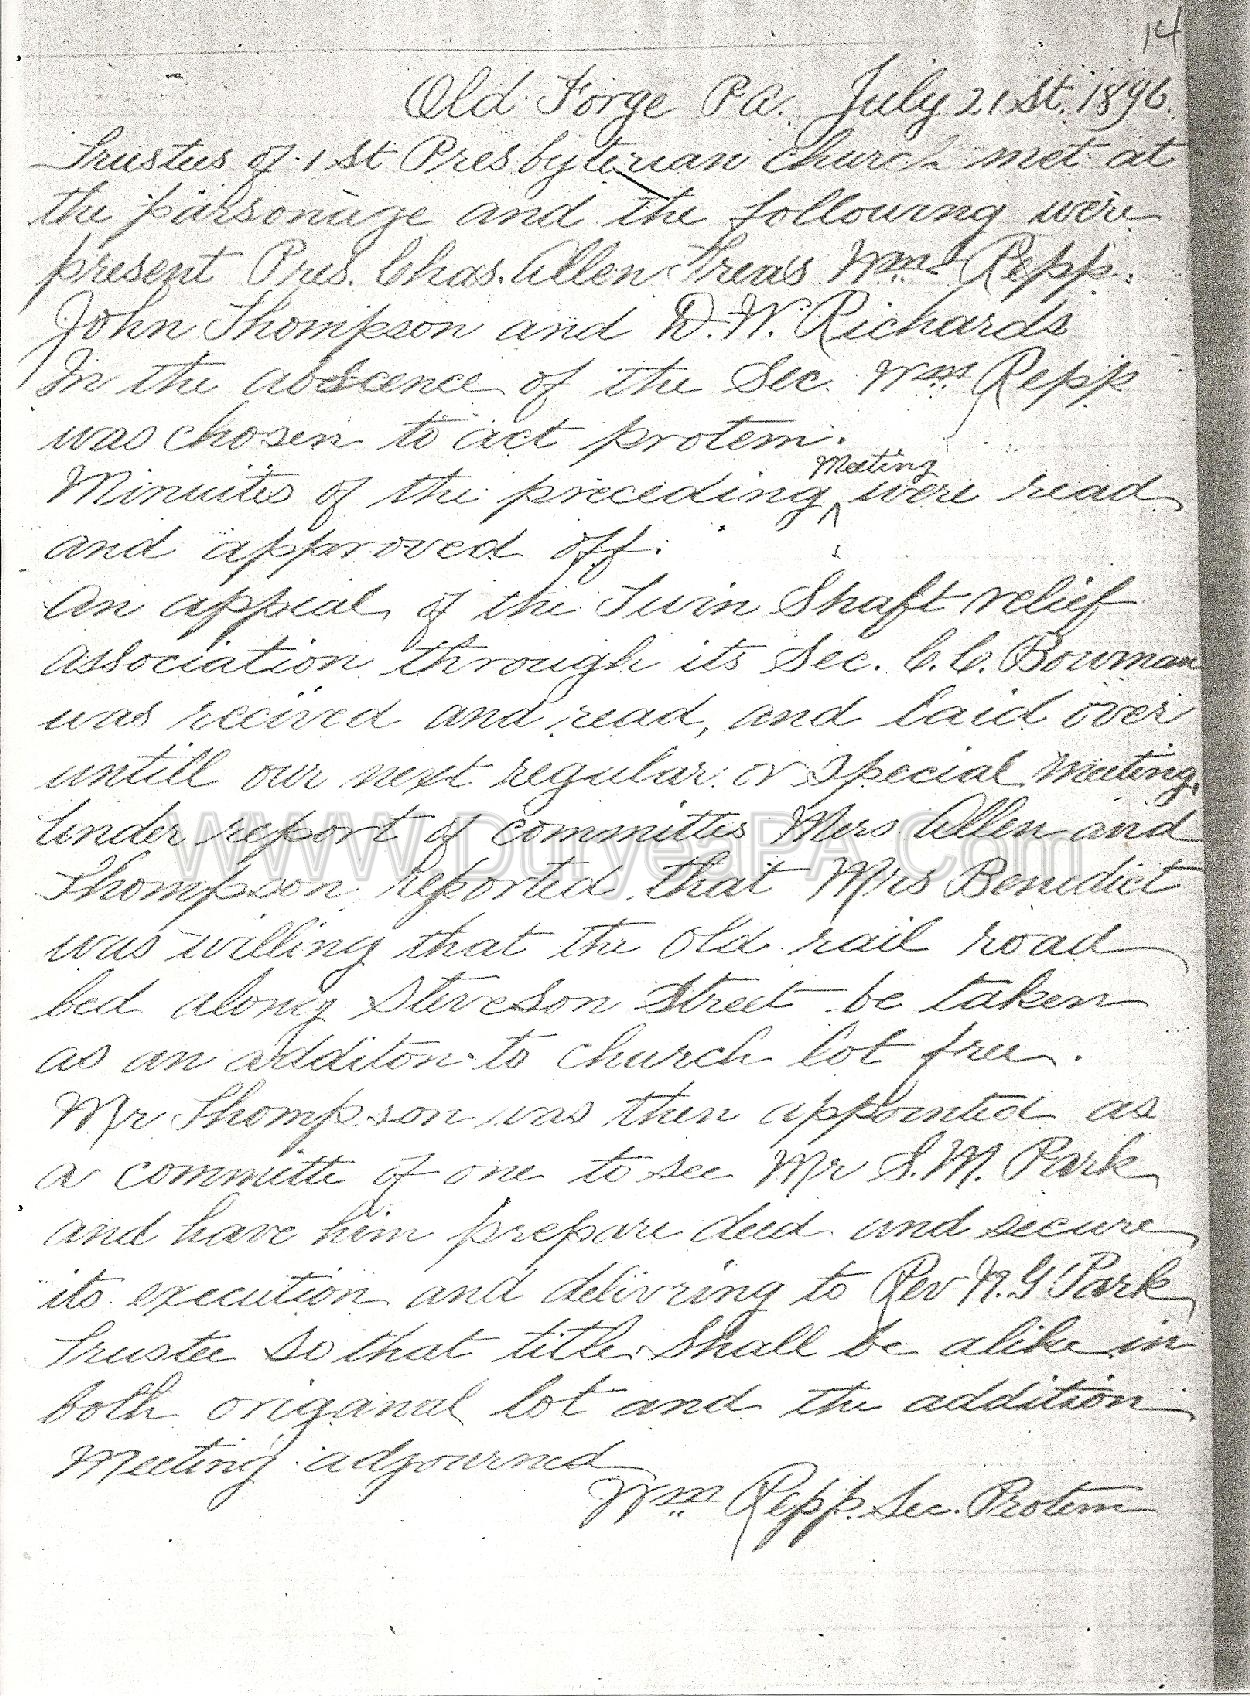 14
Old Forge Pa. July 21st. 1896.
Trustees of 1st Presbyterian church met at
the parsonage and the following were
present Pres. Chas. Allen Treas Wm Repp.
John Thompson and D. W. Richards
In the abscence of the Sec. Wm Repp
was chosen to act protem.
Meeting
Minuites of the preceding ^ were read
and approved off.
An appeal of the Twin Shaft relief
association through its Sec. C. C. Bowman
was recived and read, and laid over
untill our next regular or special Meeting.
Under report of committes Mers Allen and
Thompson reported that Mrs Benedict
was willing that the old rail road
bed along Steveson Street be taken
as an additon to church lot free.
Mr Thompson was then appointed as
a committe of one to see Mr S. M. Park
and have him prepare deed and secure
its execution and delivring to Rev N. G Park
Trustee So that title Shall be alike in
both origanal lot and the addition
Meeting adjourned
Wm Repp. Sec. Protem
WWW.DuryeaPA.Com